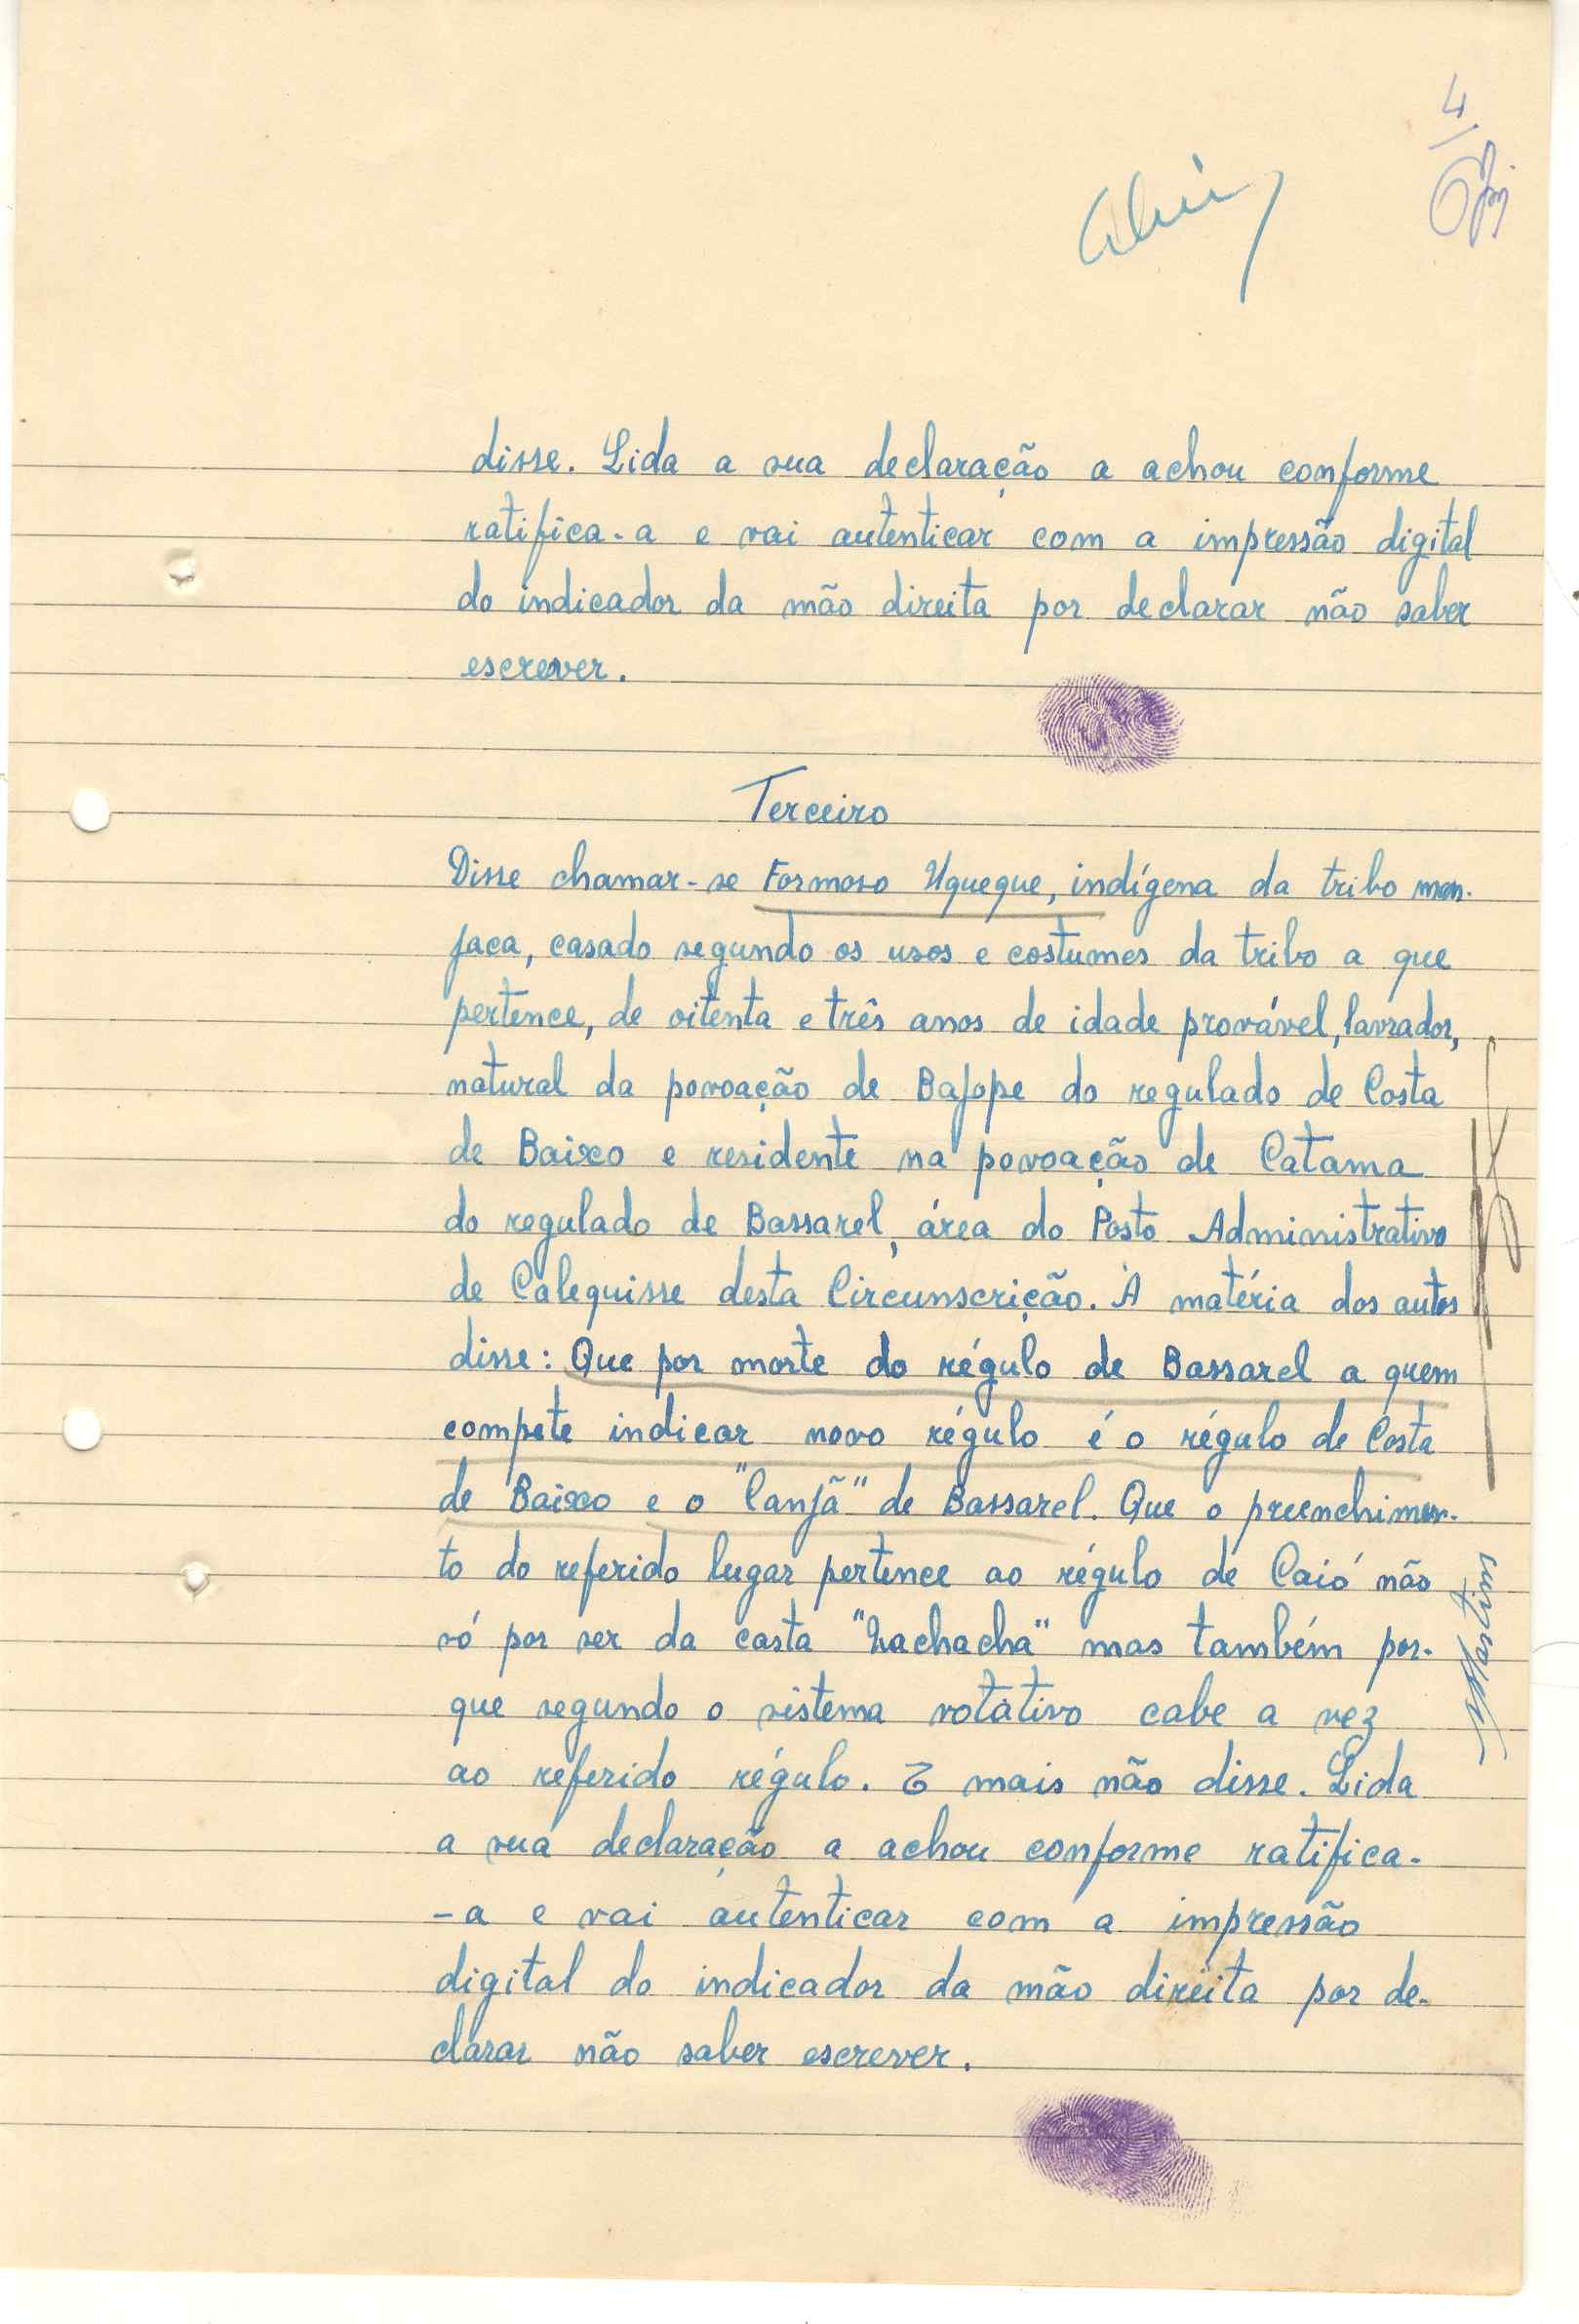 4
disse. Lida a sua declaração a achou conforme
ratifica-a e vai autenticar com a impressão digital
do indicador da mão direita por declarar não saber
escrever.
Terceiro
Disse chamar-se Formoso Uqueque, indígena da tribo man-
jaca, casado segundo os usos e costumes da tribo a que
pertence, de oitenta e três anos de idade provável, lavrador,
natural da povoação de Bajope do regulado de Costa
de Baixo e residente na povoação de Catama
do regulado de Bassarel, área do Posto Administrativo
de Calequisse desta Circunscrição. À matéria dos autos
disse: Que por morte do régulo de Bassarel a quem
compete indicar novo régulo é o régulo de Costa
de Baixo e o "Canjã" de Bassarel. Que o preenchimen-
to do referido lugar pertence ao régulo de Caió não
só por ser da casta "Nachacha" mas também por-
que segundo o sistema rotativo cabe a vez
ao referido régulo. E mais não disse. Lida
a sua declaração a achou conforme ratifica-
-a e vai autenticar com a impressão
digital do indicador da mão direita por de-
clarar não saber escrever.
Martins